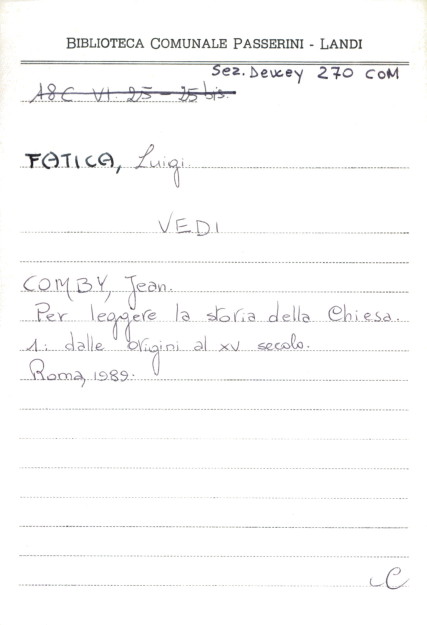 BIBLIOTECA COMUNALE PASSERINI - LANDI
Sez. Dewey 270 COM
A8C VI 25 - 25 bis.
FATICA, Luigi
VEDI
COMBY, Jean.
Per leggere la storia della Chiesa.
1: dalle origini al XV secolo.
Roma, 1989.
C